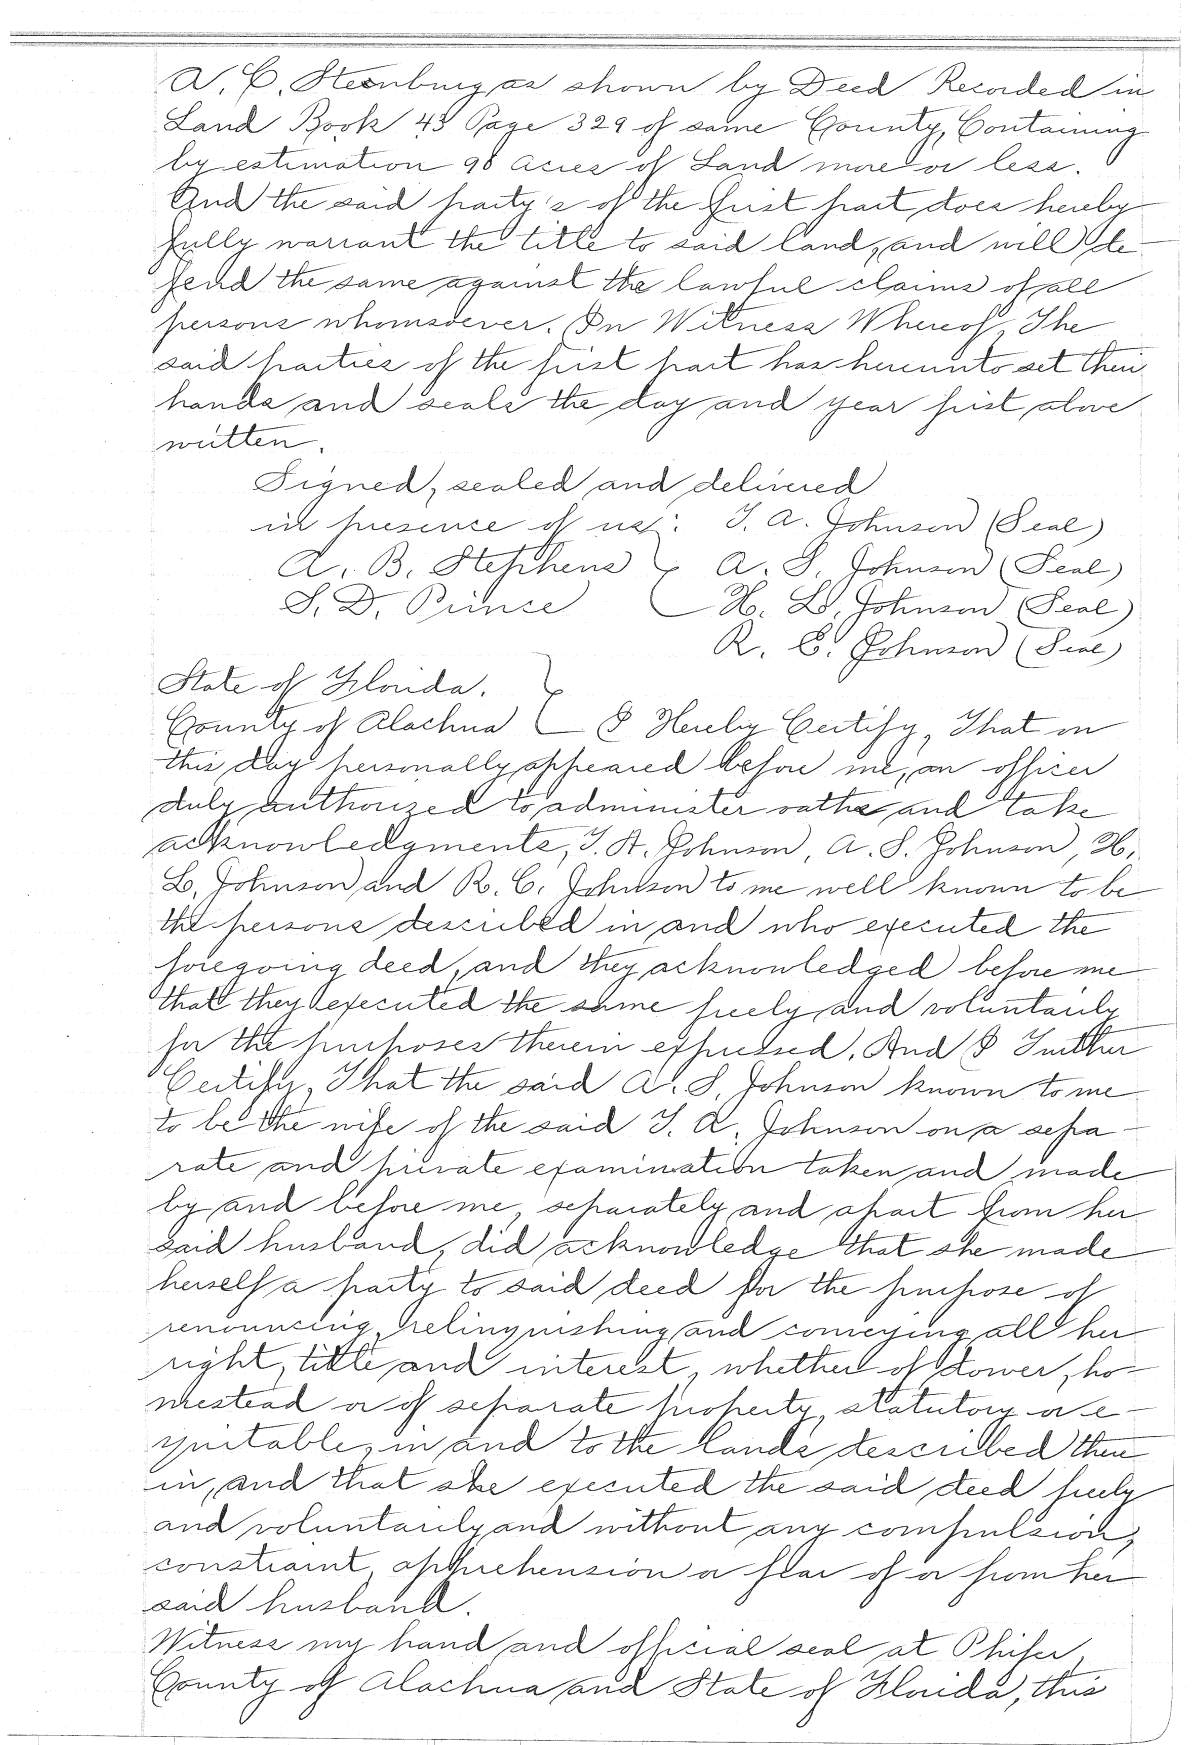 A. C. Steenburg, as shown by Deed Recorded in
Land Book 43 Page 329 of same County, Containing
by estimation 98 acres of Land more or less.
And the said party's of the first part does hereby
fully warrant the title to said land, and will de
fend the same against the lawful claims of all
persons whomsoever. In Witness Whereof, The
said parties of the first part has hereunto set their
hands and seals the day and year first above
written.
Signed, sealed and delivered
in presence of us: T. A. Johnson (Seal)
A. B. Stephens } A. S. Johnson (Seal)
S. D. Prince H. L. Johnson (Seal)
R. C. Johnson (Seal)
State of Florida. }
County of Alachua I Hereby Certify, That on
this day personally appeared before me, an officer
duly authorized to administer oaths and take
acknowledgments, T. A. Johnson, A. S. Johnson, H.
L. Johnson and R. C. Johnson to me well known to be
the persons described in and who executed the
foregoing deed, and they acknowledged before me
that they executed the same freely and voluntarily
for the purposes therein expressed. And I Further
Certify, That the said A. S. Johnson known to me
to be the wife of the said T. A. Johnson on a sepa-
rate and private examination taken and made
by and before me, separately and apart from her
said husband, did acknowledge that she made
herself a party to said deed for the purpose of
renouncing, relinquishing and conveying all her
right, title and interest, whether of dower, ho-
mestead or of separate property, statutory or e-
quitable, in and to the lands described there
in, and that she executed the said deed freely
and voluntarily and without any compulsion,
constraint, apprehension or fear of or from her
said husband.
Witness my hand and official seal at Phifer,
County of Alachua and State of Florida, this